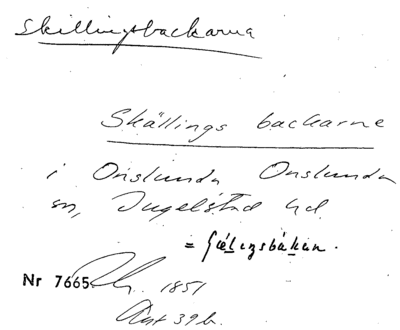 Skillingsbackarna
Skällings backarne
i Onslunda Onslunda
sn, Ingelstad hd.
Nr 7665 1851
Akt 39b.